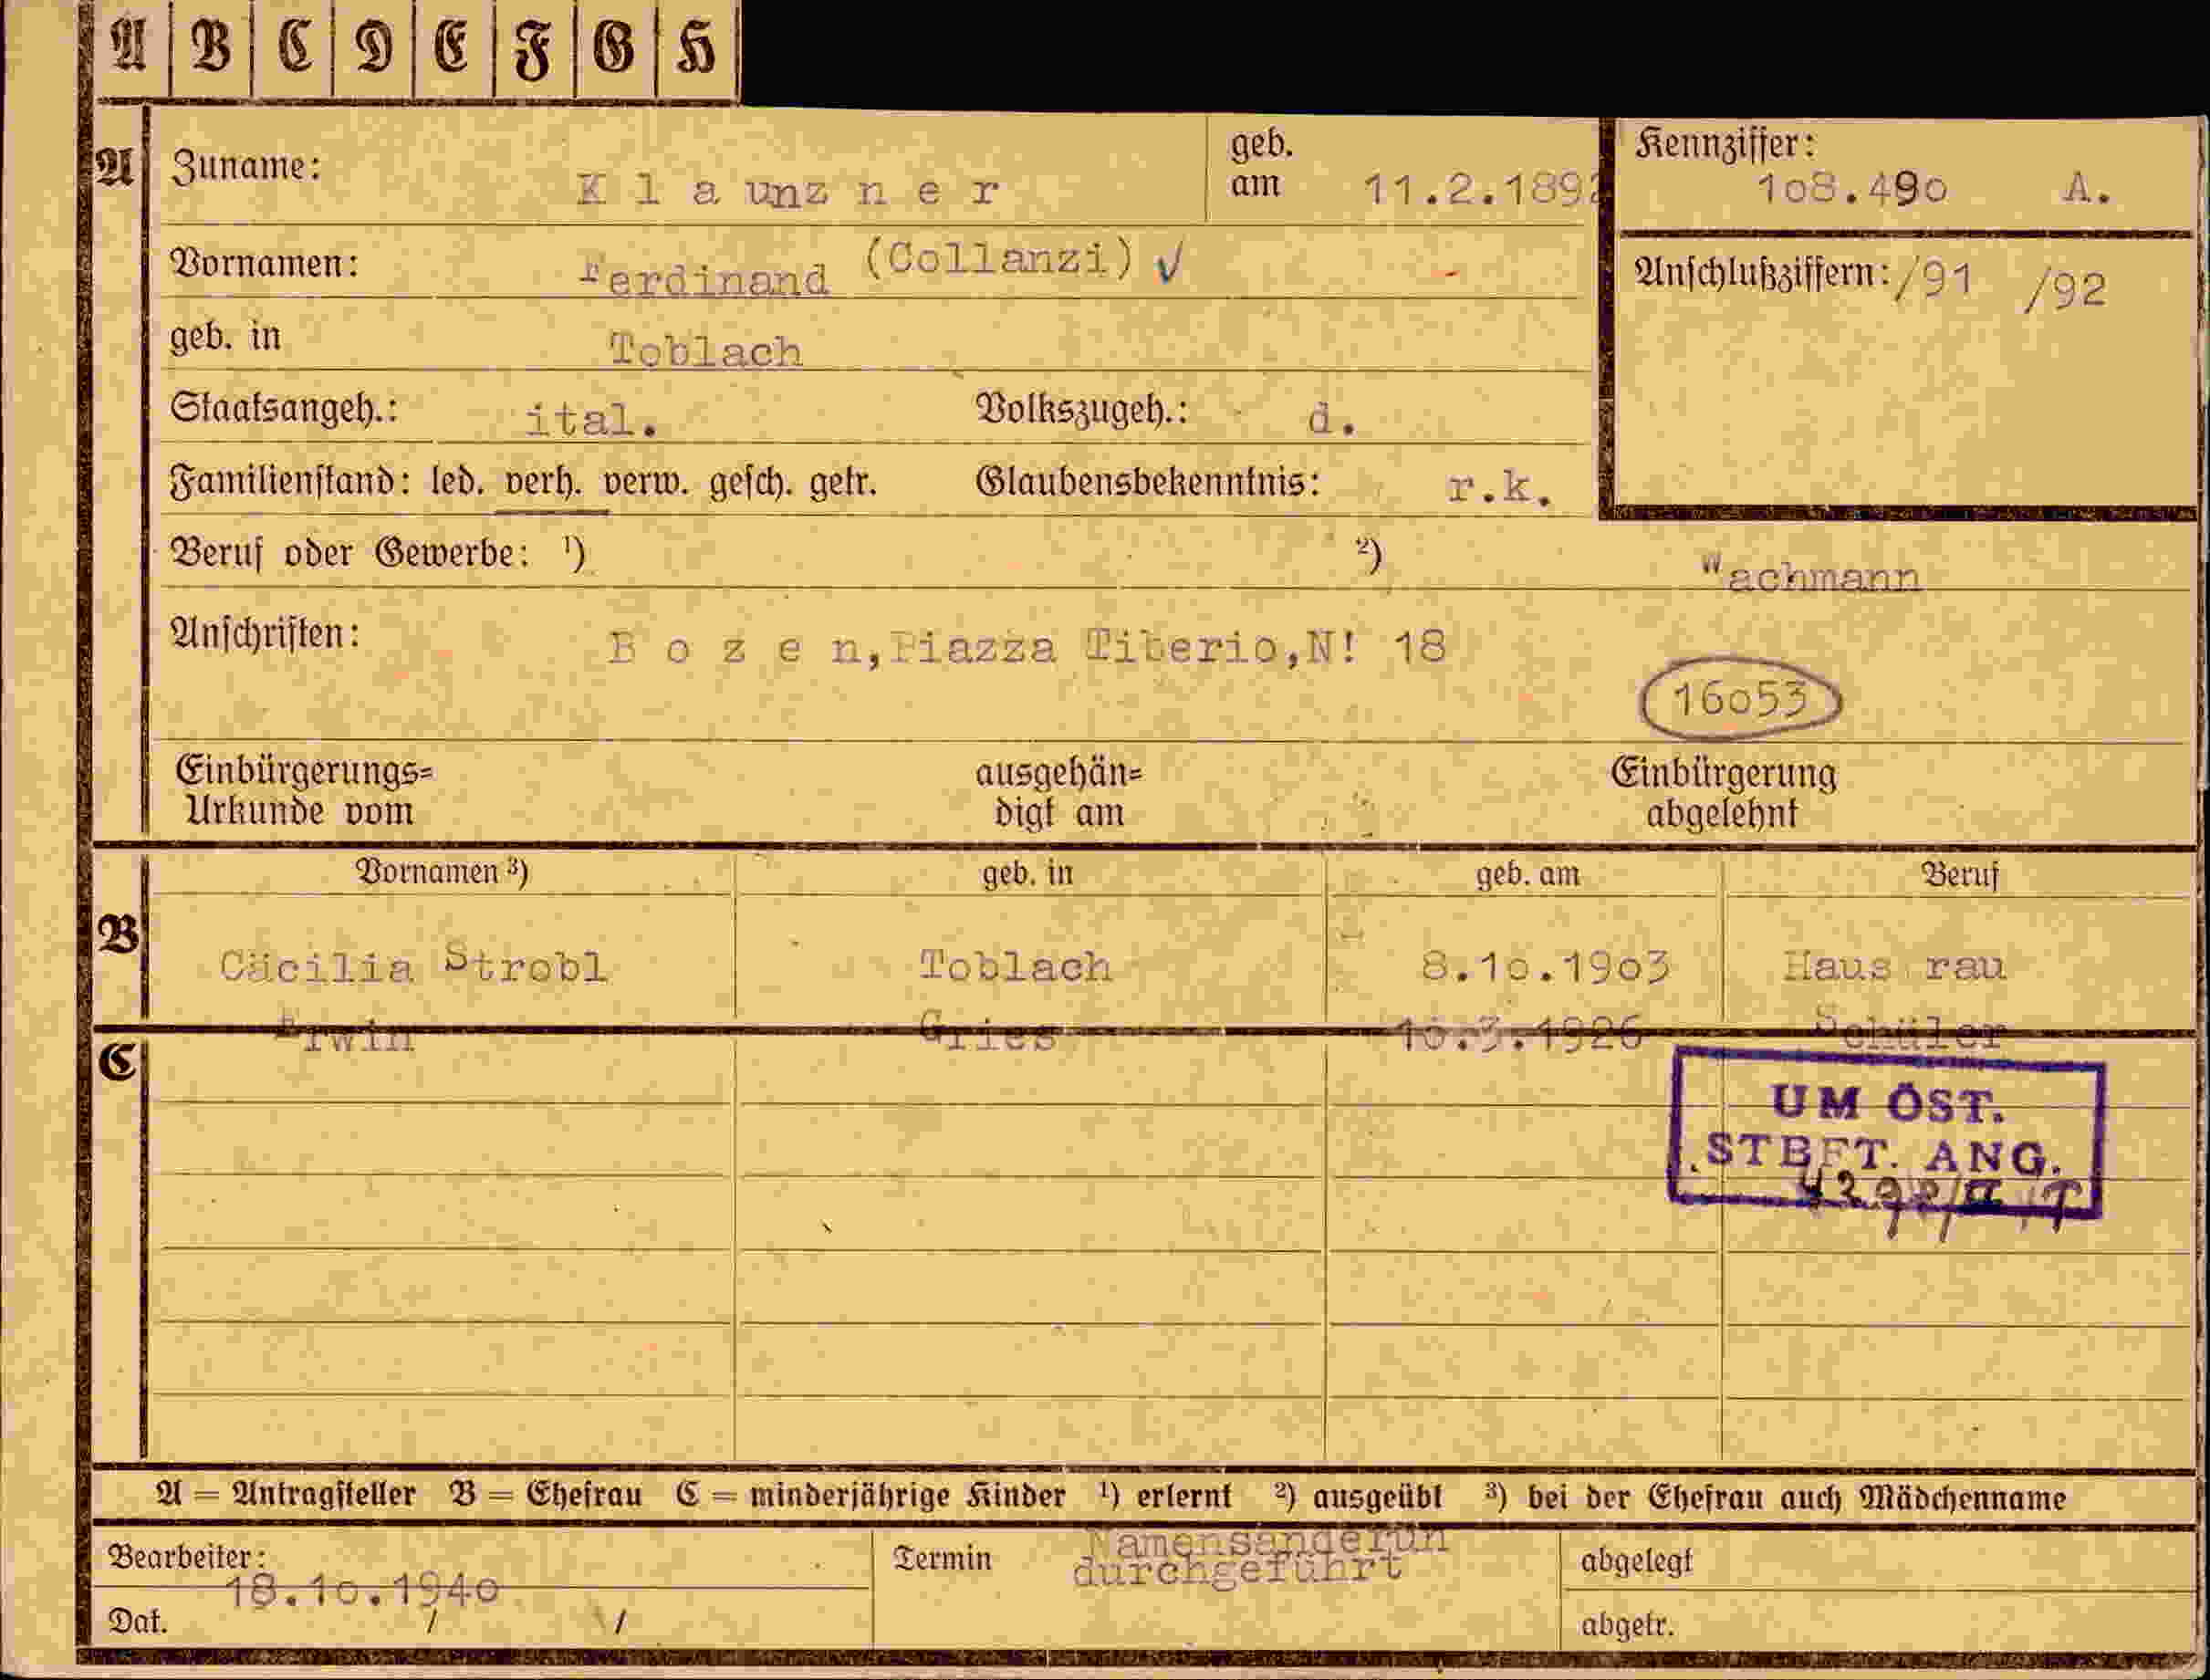 A B C D E F G H
A Zuname: K l a unz n e r geb. am 11.2.1892 Kennziffer: 108.490 A.
Vornamen: Ferdinand (Collanzi) ✓ Anschlußziffern: /91 /92
geb. in Toblach
Staatsangeh.: ital. Volkszugeh.: d.
Familienstand: led. verh. verw. gesch. getr. Glaubensbekenntnis: r.k.
Beruf oder Gewerbe: ¹) ²) Wachmann
Anschriften: B o z e n,Piazza Tiberio,N! 18
16053
Einbürgerungs= ausgehän= Einbürgerung
Urkunde vom digt am abgelehnt
Vornamen ³) geb. in geb. am Beruf
B Cäcilia Strobl Toblach 8.10.1903 Haus rau
Erwin Gries .3.1926 Schüler
C
UM ÖST.
STBFT. ANG.
A = Antragsteller B = Ehefrau C = minderjährige Kinder ¹) erlernt ²) ausgeübt ³) bei der Ehefrau auch Mädchenname
Bearbeiter: Termin Namensänderun abgelegt
18.10.1940 durchgeführt
Dat. / / abgetr.